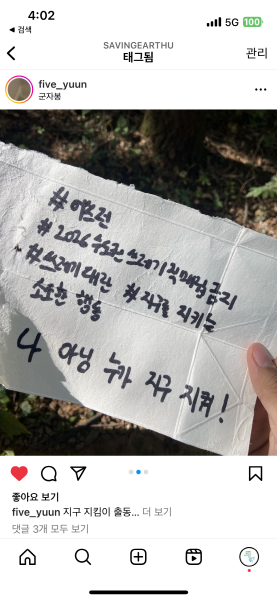 4:02
5G 100
◀ 검색
SAVINGEARTHU
태그됨
관리
five_yuun
군자봉
#에쓰전
#2026 수도권 쓰레기 직매립 금지
#쓰레기 대란 #지구를 지키는
소소한 행동
나 아님 누가 지구 지켜!
좋아요 보기
five_yuun 지구 지킴이 출동... 더 보기
댓글 3개 모두 보기